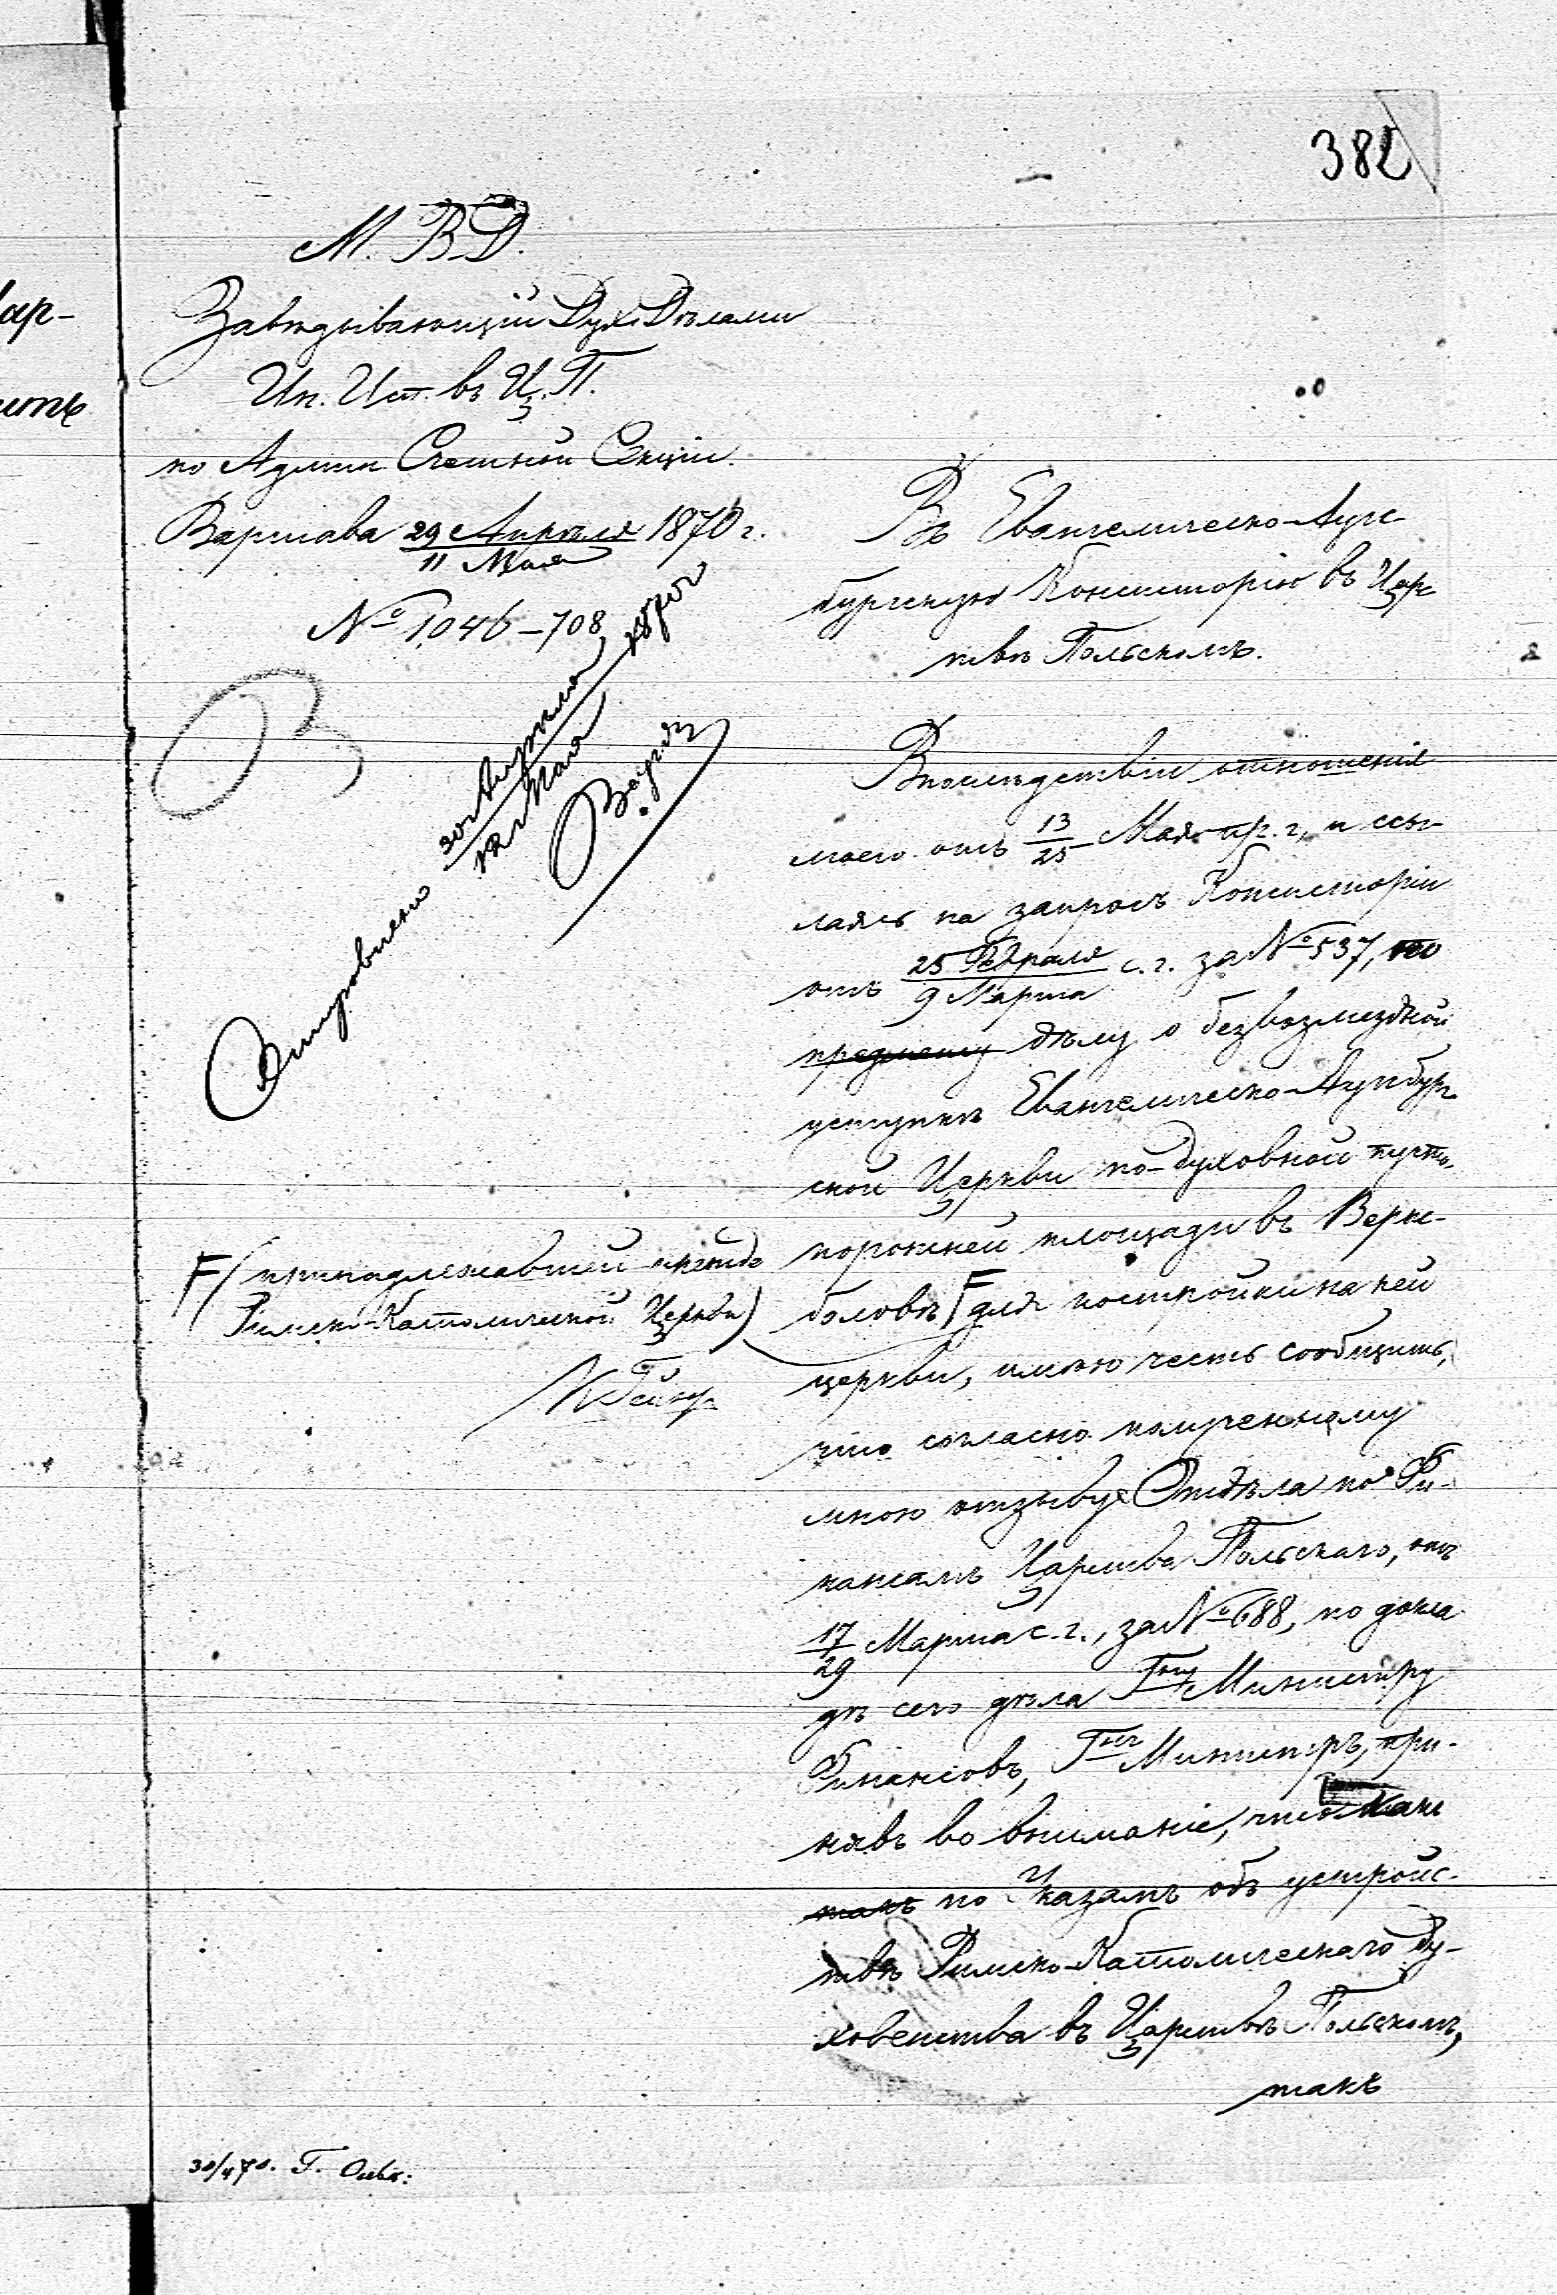 382
М. В. Д.
Завѣдывающій Дух. Дѣлами
Ин. Исп. въ Ц. П.
по Админ. Счетной Секціи.
Варшава 29 Апрѣля / 11 Мая 1870 г.
№ 1046-708
Отправлено 30 Апрѣля / 12 Мая 1870 г.
Въ Евангелическо-Аугс-
бургскую Консисторію въ Царс-
твѣ Польскомъ.
Впослѣдствіи отношенія
моего отъ 13/25 Мая пр. г., и ссы-
лаясь на запросъ Консисторіи
отъ 25 Февраля / 9 Марта с. г. за № 537, по
предмету дѣлу о безвозмездной
уступкѣ Евангелическо-Аугсбург-
ской Церкви по-духовной пусто-
порожней площади въ Верж-
боловѣ F для постройки на ней
церкви, имѣю честь сообщить,
что согласно полученному
мною отзыву Отдѣла по Фи-
нансамъ Царства Польскаго, отъ
17/29 Марта с. г., за № 688, по докла-
дѣ сего дѣла Гну Министру
Финансовъ, Гнъ Министръ, при-
нявъ во вниманіе, что какъ
такъ по Указамъ объ устройс-
твѣ Римско-Католическаго Ду-
ховенства въ Царствѣ Польскомъ,
такъ
F (принадлежавшей прежде
Римско-Католической Церкви)
30/4 70. Г.